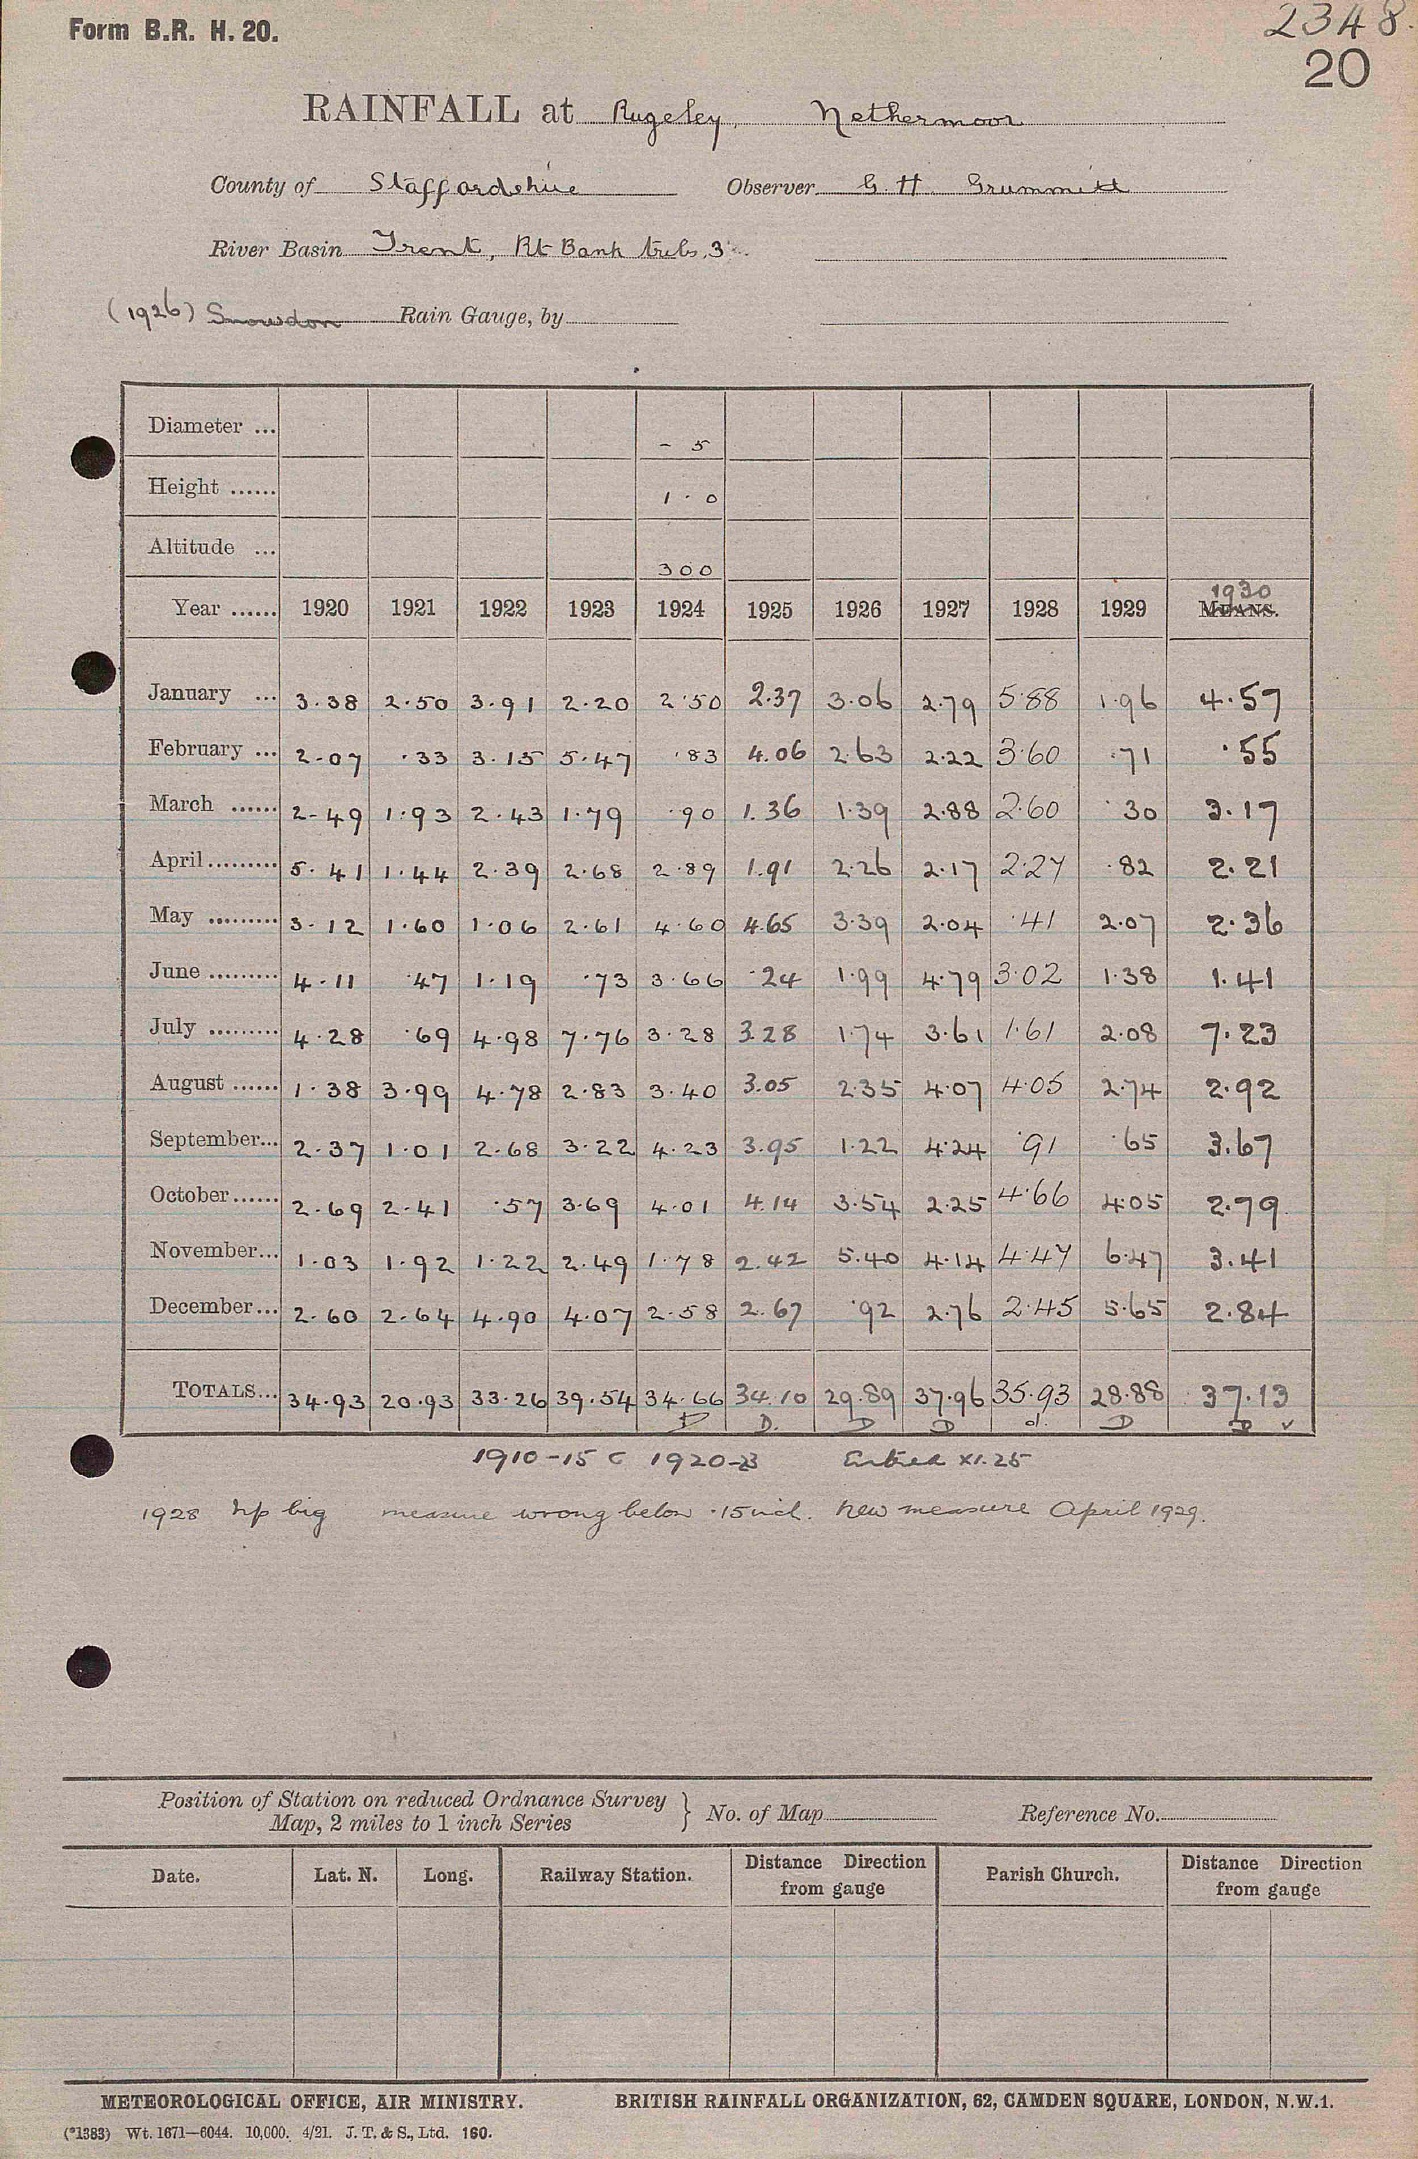 Form B.R. H. 20.
2348.
20
RAINFALL at Rugeley, Nethermoor
County of Staffordshire Observer G. H. Grummitt
River Basin Trent, Rt Bank tribs, 3
(1926) Snowdon Rain Gauge, by
Diameter ... - 5
Height ...... 1 . 0
Altitude ... 300
Year ...... 1920 1921 1922 1923 1924 1925 1926 1927 1928 1929 1930 MEANS.
January ... 3.38 2.50 3.91 2.20 2.50 2.37 3.06 2.79 5.88 1.96 4.57
February ... 2.07 .33 3.15 5.47 .83 4.06 2.63 2.22 3.60 .71 .55
March ...... 2.49 1.93 2.43 1.79 .90 1.36 1.39 2.88 2.60 .30 3.17
April ......... 5.41 1.44 2.39 2.68 2.89 1.91 2.26 2.17 2.27 .82 2.21
May ......... 3.12 1.60 1.06 2.61 4.60 4.65 3.39 2.04 .41 2.07 2.36
June ......... 4.11 .47 1.19 .73 3.66 .24 1.99 4.79 3.02 1.38 1.41
July ......... 4.28 .69 4.98 7.76 3.28 3.28 1.74 3.61 1.61 2.08 7.23
August ...... 1.38 3.99 4.78 2.83 3.40 3.05 2.35 4.07 4.05 2.74 2.92
September... 2.37 1.01 2.68 3.22 4.23 3.95 1.22 4.24 .91 .65 3.67
October ...... 2.69 2.41 .57 3.69 4.01 4.14 3.54 2.25 4.66 4.05 2.79
November... 1.03 1.92 1.22 2.49 1.78 2.42 5.40 4.14 4.47 6.47 3.41
December... 2.60 2.64 4.90 4.07 2.58 2.67 .92 2.76 2.45 5.65 2.84
TOTALS... 34.93 20.93 33.26 39.54 34.66 34.10 29.89 37.96 35.93 28.88 37.13
D D. D D d. D D ✓
1910-15 C 1920-23 Entered XI.25
1928 big measure wrong below .15 inch. New measure April 1929.
Position of Station on reduced Ordnance Survey
Map, 2 miles to 1 inch Series } No. of Map Reference No.
Date. Lat. N. Long. Railway Station. Distance Direction from gauge Parish Church. Distance Direction from gauge
METEOROLOGICAL OFFICE, AIR MINISTRY. BRITISH RAINFALL ORGANIZATION, 62, CAMDEN SQUARE, LONDON, N.W.1.
(*1383) Wt. 1671—6044. 10,000. 4/21. J. T. & S., Ltd. 160.